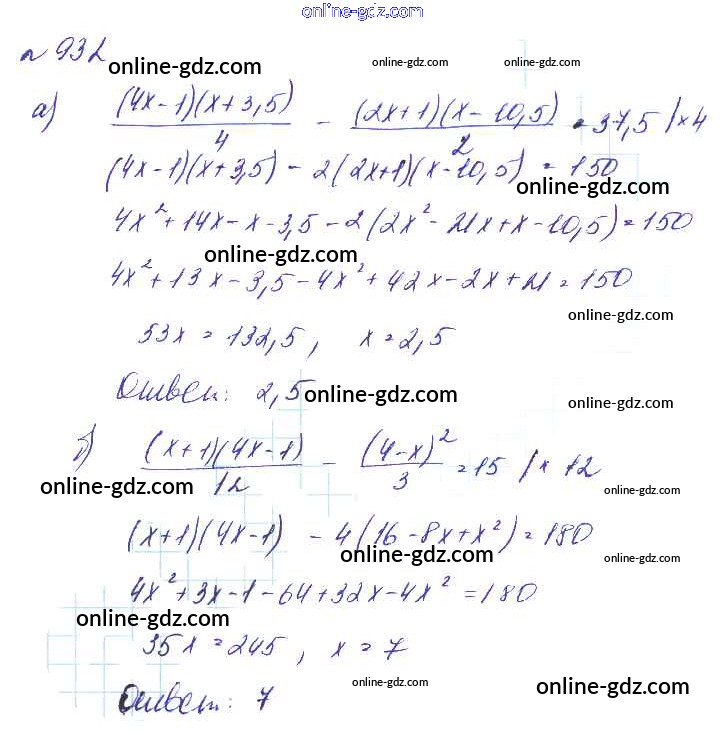 online-gdz.com
№ 932
online-gdz.com online-gdz.com online-gdz.com
а) (4x-1)(x+3,5)/4 - (2x+1)(x-10,5)/2 = 37,5 /×4
(4x-1)(x+3,5) - 2(2x+1)(x-10,5) = 150
online-gdz.com
4x²+14x-x-3,5-2(2x²-21x+x-10,5)=150
online-gdz.com
4x²+13x-3,5-4x²+42x-2x+21=150
online-gdz.com
53x = 132,5, x = 2,5
Ответ: 2,5
online-gdz.com online-gdz.com
б) (x+1)(4x-1)/12 - (4-x)²/3 = 15 /×12
online-gdz.com online-gdz.com
(x+1)(4x-1) - 4(16-8x+x²) = 180
online-gdz.com online-gdz.com
4x²+3x-1-64+32x-4x² = 180
online-gdz.com online-gdz.com
35x = 245, x = 7
Ответ: 7
online-gdz.com online-gdz.com